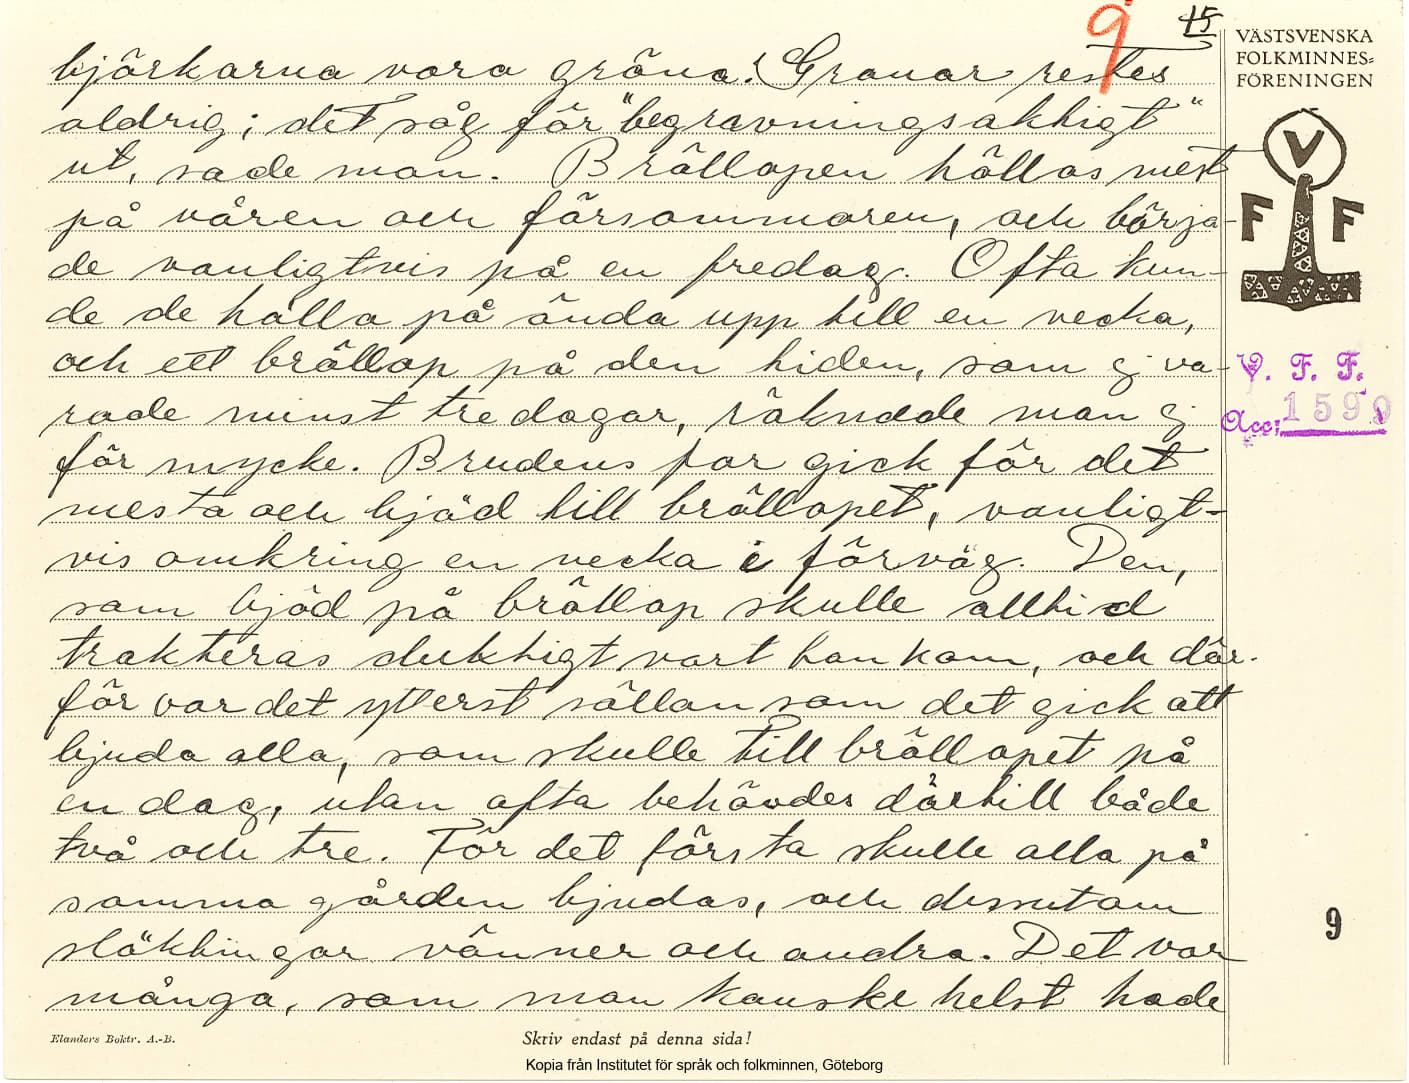 9 15
VÄSTSVENSKA
FOLKMINNES=
FÖRENINGEN
björkarna voro gröna! Granar restes
aldrig; det såg för "begravningsaktigt"
ut, sade man. Bröllopen höllos mest
på våren och försommaren, och börja-
de vanligtvis på en fredag. Ofta kun-
de de hålla på ända upp till en vecka,
och ett bröllop på den tiden, som ej va-
rade minst tre dagar, räknade man ej
för mycke. Brudens far gick för det
mesta och bjöd till bröllopet, vanligt-
vis omkring en vecka i förväg. Den,
som bjöd på bröllop skulle alltid
trakteras duktigt vart han kom, och där-
för var det ytterst sällan som det gick att
bjuda alla, som skulle till bröllopet på
en dag, utan ofta behövdes därtill både
två och tre. För det första skulle alla på
samma gården bjudas, och dessutom
släktingar vänner och andra. Det var
många, som man kanske helst hade
V
F F
V. F. F.
Acc: 1590
9
Elanders Boktr. A.-B.
Skriv endast på denna sida!
Kopia från Institutet för språk och folkminnen, Göteborg